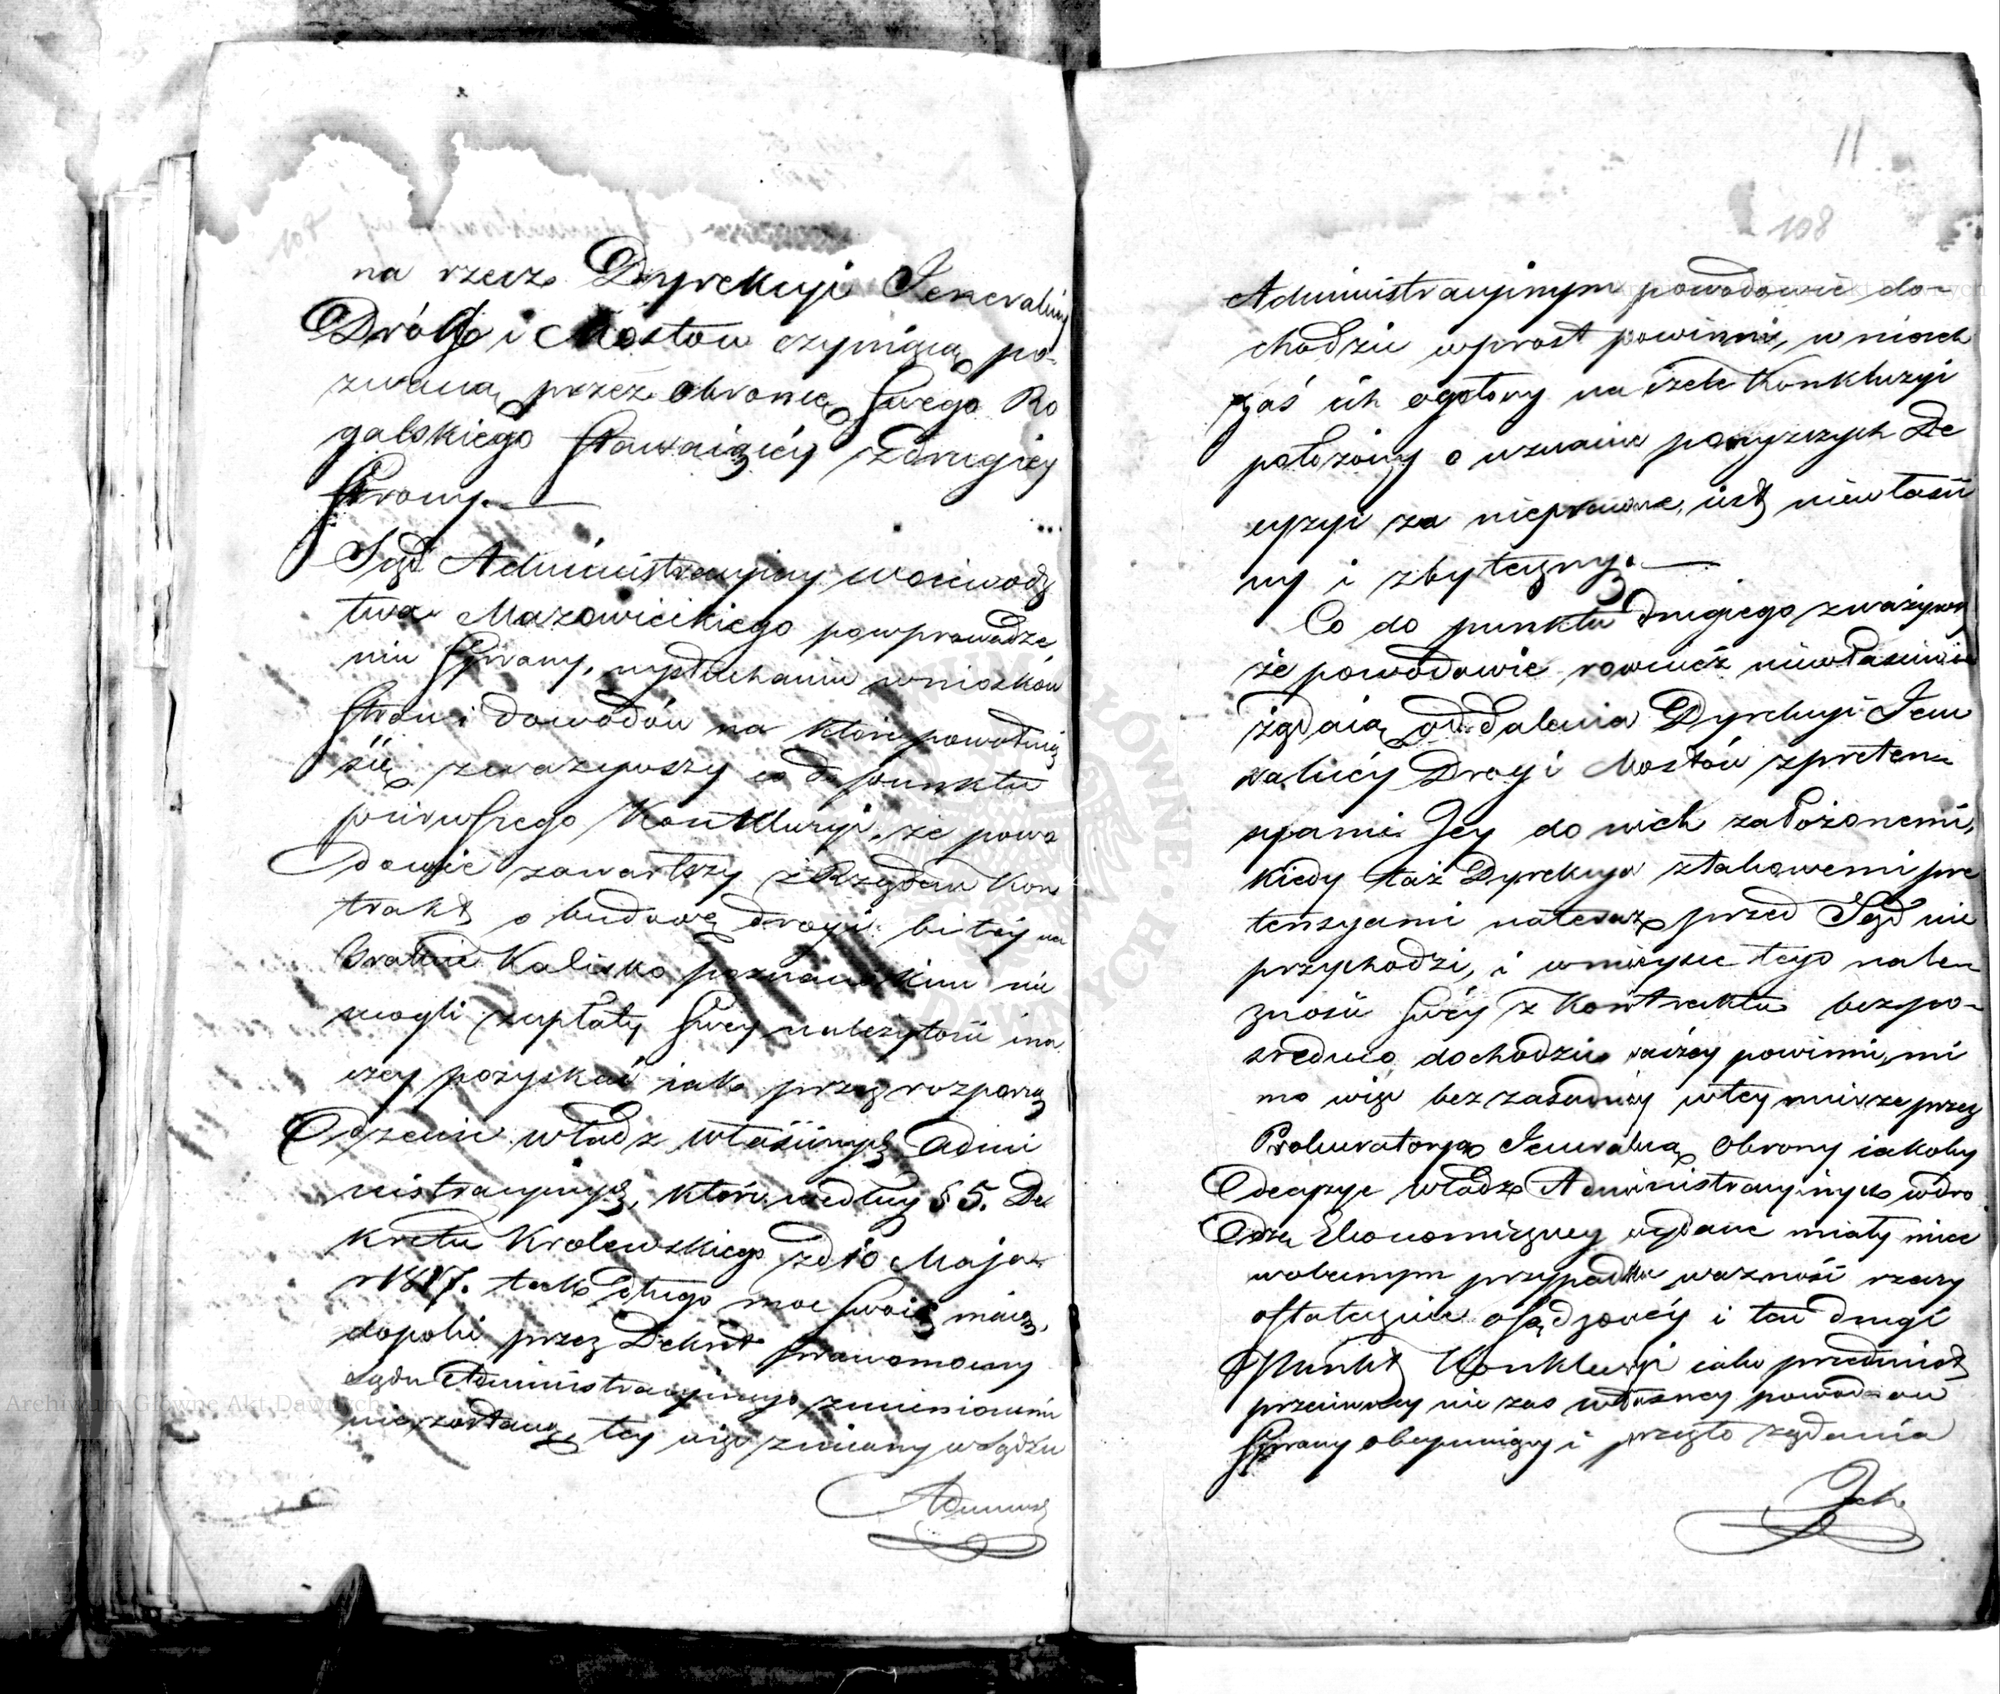 na rzecz Dyrekcyi Jeneralney
Dróg i Mostow czyniącą po-
zwaną przez obroncę swego Ro
galskiego stawaiącéy z drugiey
strony.—
Sąd Administracyiny Woiewodz
twa Mazowieckiego po wprowadze
niu sprawy, wysłuchaniu wnioskow
stron i dowodów na które powołuią
się, zważywszy co do punktu
pierwszego Konkluzyi, że powo
dowie zawarłszy z Rządem Kon
trakt o budowę drogi bitéy na
trakcie Kalisko Poznanskim nie
mogli zapłaty swey należytości ina
czey pozyskać iak przez rozporzą
dzenie władz właściwych Admi
nistracyinych, które według § 5. De
kretu Krolewskiego z d 10 Maja
r 1817. tak długo moc swoią maią,
dopoki przez Dekret prawomocny
Sądu Administracyinego zmienionemi
nie zostaną, tey więc zmiany w Sądzie
11
108
Administracyinym powodowie do-
chodzić wprost powinni, wniosek
zaś ich ogolowy na czele Konkluzyi
położony o uznanie powyższych De
cyzyi za nieprawne, iest niewłaści
wy i zbyteczny.—
Co do punktu drugiego zważywszy
że powodowie rownież niewłasciwie
żądaią oddalenia Dyrekcyi Jene
ralnéy Dróg i Mostów z preten-
syami Jey do nich założonemi,
kiedy taż Dyrekcya z takowemi pre
tensyami natenczas przed Sąd nie
przychodzi, i w mieysce tego nale-
żnosci swéy z Kontraktu bezpo-
srednio dochodzić raczey powinni, mi
mo więc bezzasadney w tey mierze przez
Prokuratoryą Jeneralną obrony iakoby
decyzye władz Administracyinych w dro
dze Ekonomiczney wydane miały mieć
w obecnym przypadku ważność rzeczy
ostatecznie osądzonéy i ten drugi
punkt Konkluzyi iako przedmiot
przeciwney nie zas własney powodow
sprawy obeymuiący i przeto żądania